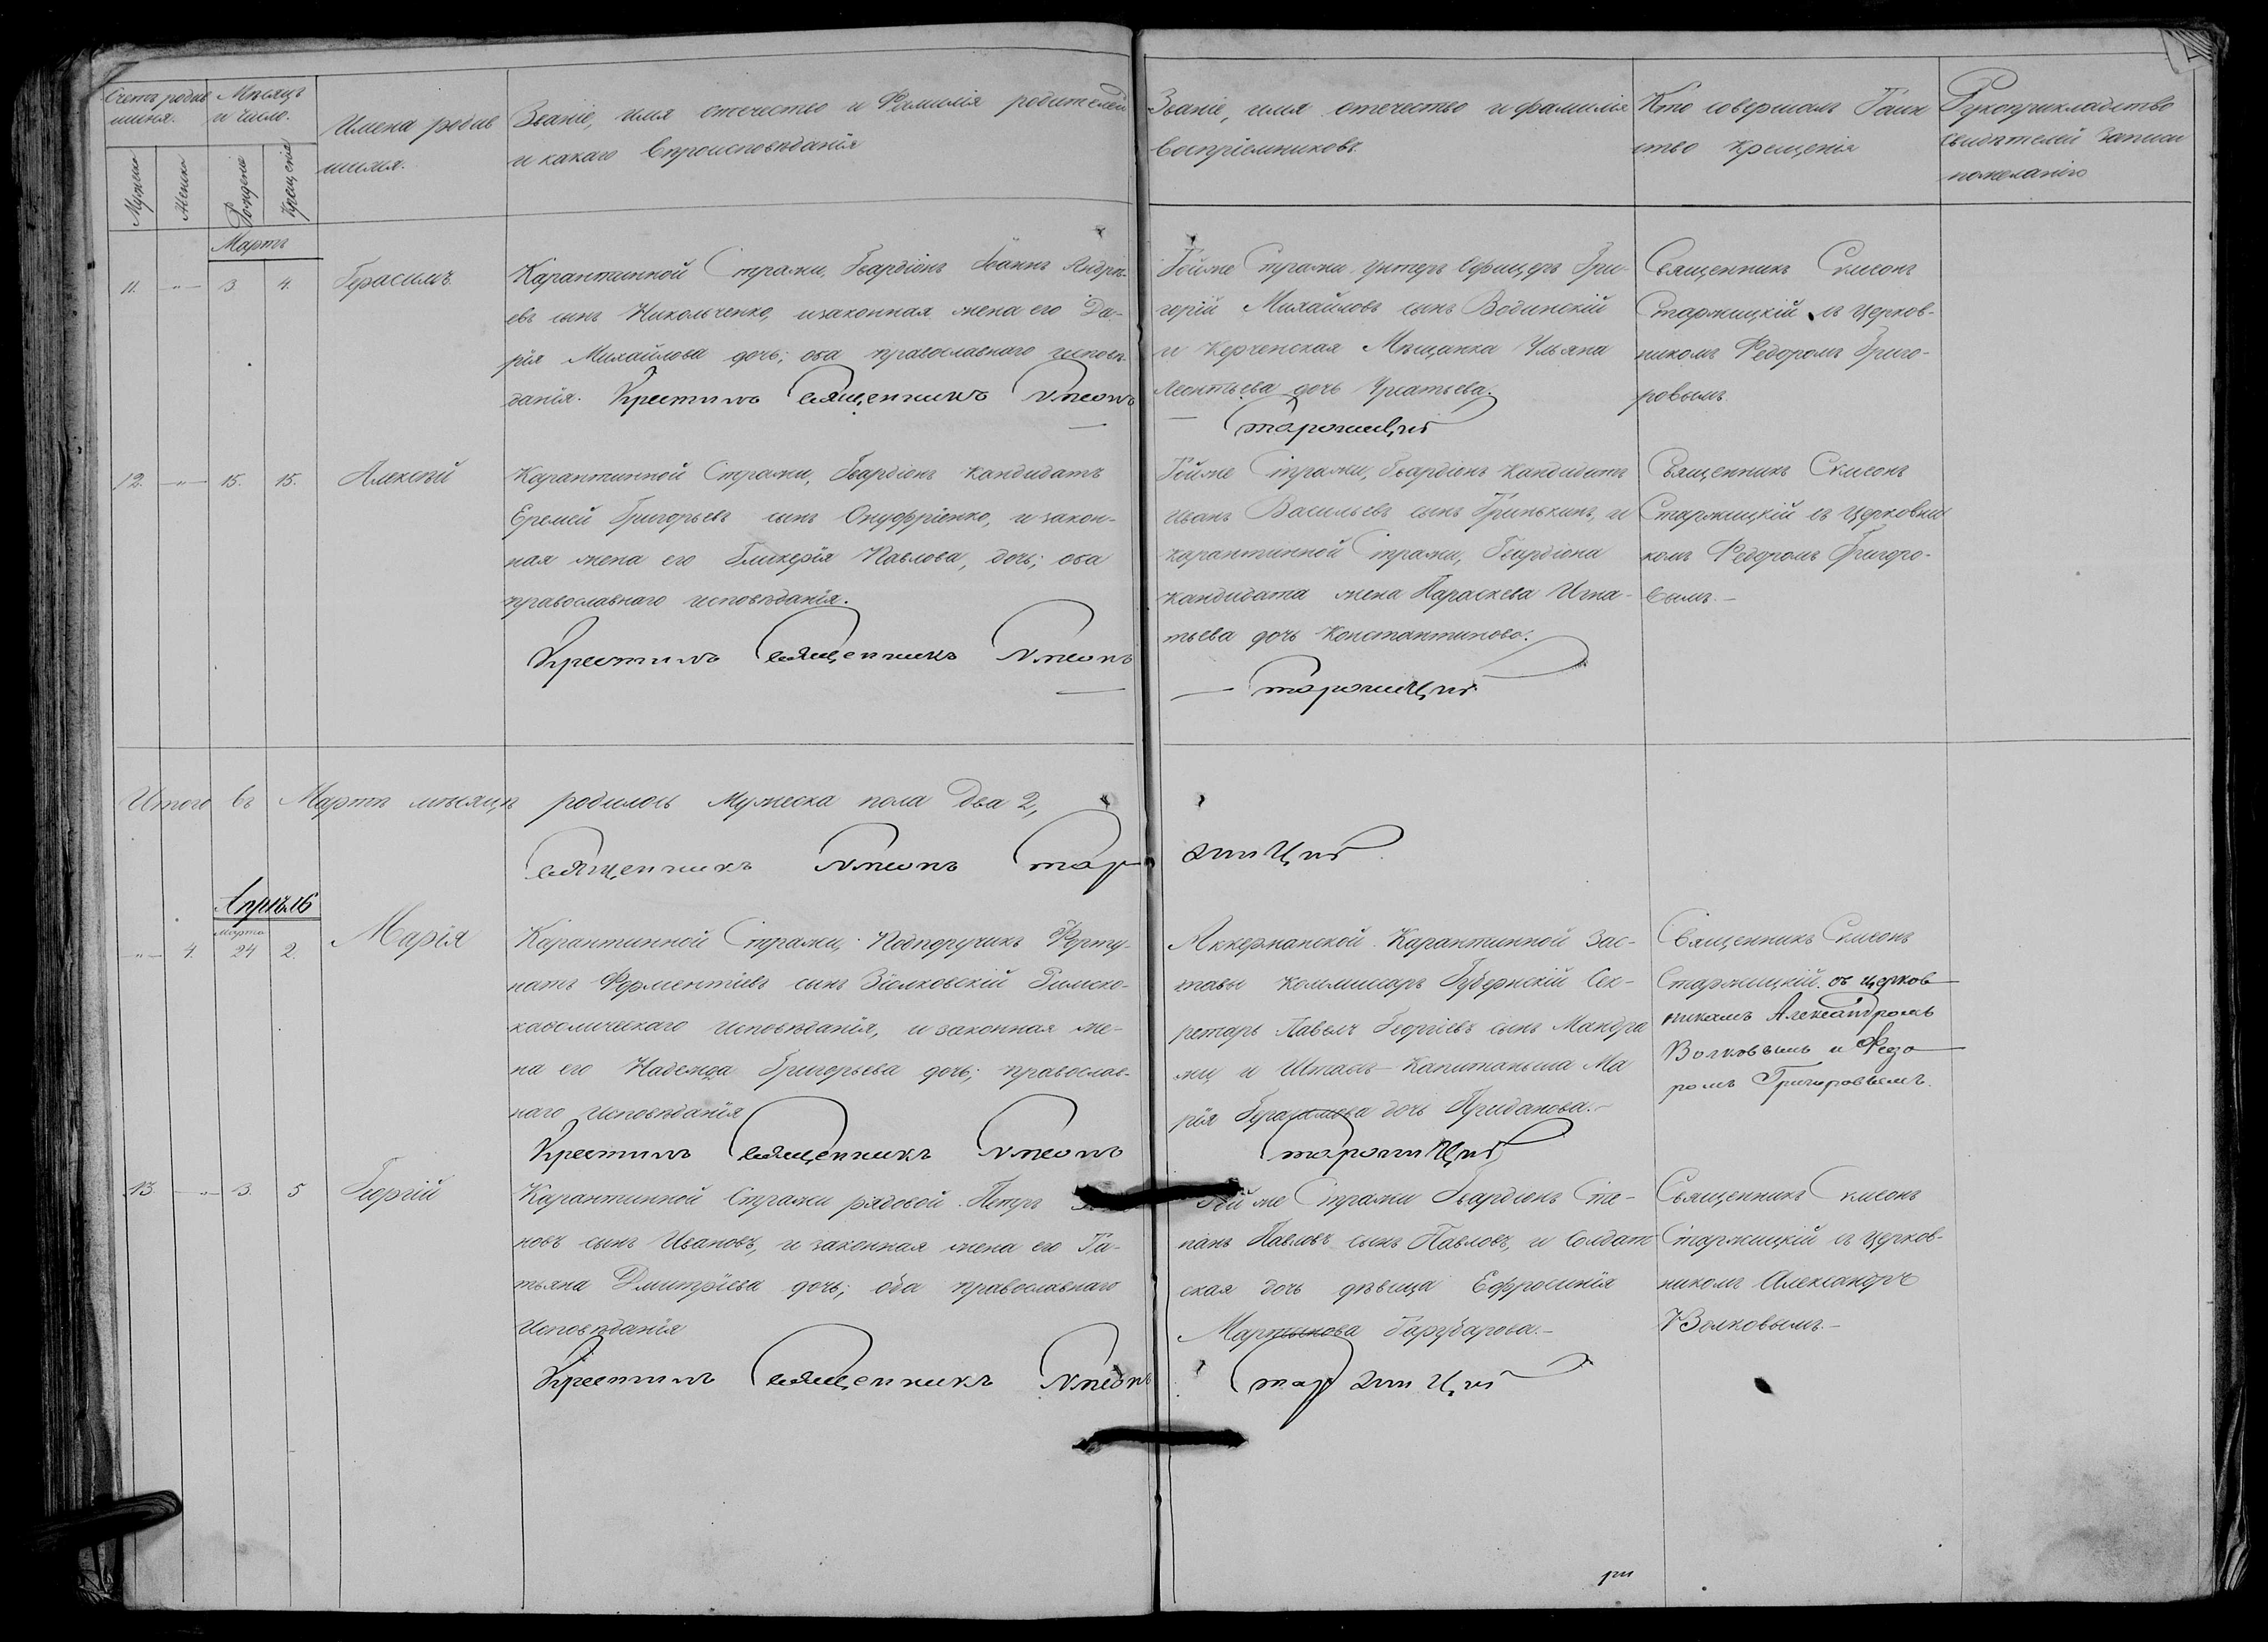 Счетъ родив
шихся.
Мѣсяцъ
и число.
Мужеска
Женска
Рожденіе
Крещеніе
Имена родив
шихся.
Званіе, имя отечество и Фамилія родителей
и какаго вѣроисповѣданія
Званіе, имя отечество и фамилія
воспріемниковъ.
Кто совершалъ Таин
ство крещенія
Рукоприкладство
свидѣтелей записи
по желанію
Мартъ
11. —„— 3. 4. Герасимъ.
Карантинной Стражи, Гвардіонъ Іоаннъ Андрѣ-
евъ сынъ Никольченко, и законная жена его Да-
рія Михайлова дочь; оба православнаго исповѣ-
данія. Крестилъ Священникъ Симеонъ
Тойже Стражи, Унтеръ Офицеръ Гри-
горій Михайловъ сынъ Водинскій
и Керченская Мѣщанка Ульяна
Леонтьева дочь Игнатьева.
— Старжицкій
Священникъ Симеонъ
Старжицкій съ церков-
никомъ Федоромъ Григо-
ровымъ
12. —„— 15. 15. Алексѣй
Карантинной Стражи, Гвардіонъ кандидатъ
Еремей Григорьевъ сынъ Онуфріенко, и закон-
ная жена его Гликерія Павлова, дочь; оба
православнаго исповѣданія.
Крестилъ Священникъ Симеонъ
Тойже Стражи, Гвардіонъ кандидатъ
Иванъ Васильевъ сынъ Гринькинъ, и
карантинной Стражи, Гвардіона
кандидата жена Параскева Игна-
тьева дочь Константинова.
— Старжицкій
Священникъ Симеонъ
Старжицкій съ церковни
комъ Федоромъ Григоро-
вымъ.—
Итого въ Мартѣ мѣсяцѣ родилось Мужеска пола два 2,
Священникъ Симеонъ Старжицкій.
Апрѣль
Марта
—„— 4. 24 2. Марія
Карантинной Стражи, Подпоручикъ Форту-
натъ Ферментіевъ сынъ Зіолковскій Римско-
каѳолическаго исповѣданія, и законная же-
на его Надежда Григорьева дочь; православ-
наго исповѣданія
Крестилъ Священникъ Симеонъ
Аккерманской Карантинной Зас-
тавы коммисаръ Губернскій Сек-
ретарь Павелъ Георгіевъ сынъ Мандра
жи и Штабсъ-Капитанша Ма
рія Герасимова дочь Приданова.—
Старжицкій
Священникъ Симеонъ
Старжицкій. съ церков
никамъ Александромъ
Волковымъ и Федо
ромъ Григоровымъ.
13. —„— 3. 5 Георгій
Карантинной Стражи рядовой Петръ
новъ сынъ Ивановъ, и законная жена его Та-
тьяна Дмитріева дочь; оба православнаго
исповѣданія
Крестилъ Священникъ Симеонъ
Тойже Стражи Гвардіонъ Сте-
панъ Павловъ сынъ Павловъ, и Солдат
ская дочь дѣвица Ефросинія
Мартынова Гарубарова.—
Старжицкій
Священникъ Симеонъ
Старжицкій съ церков-
никомъ Александръ
Волковымъ.—